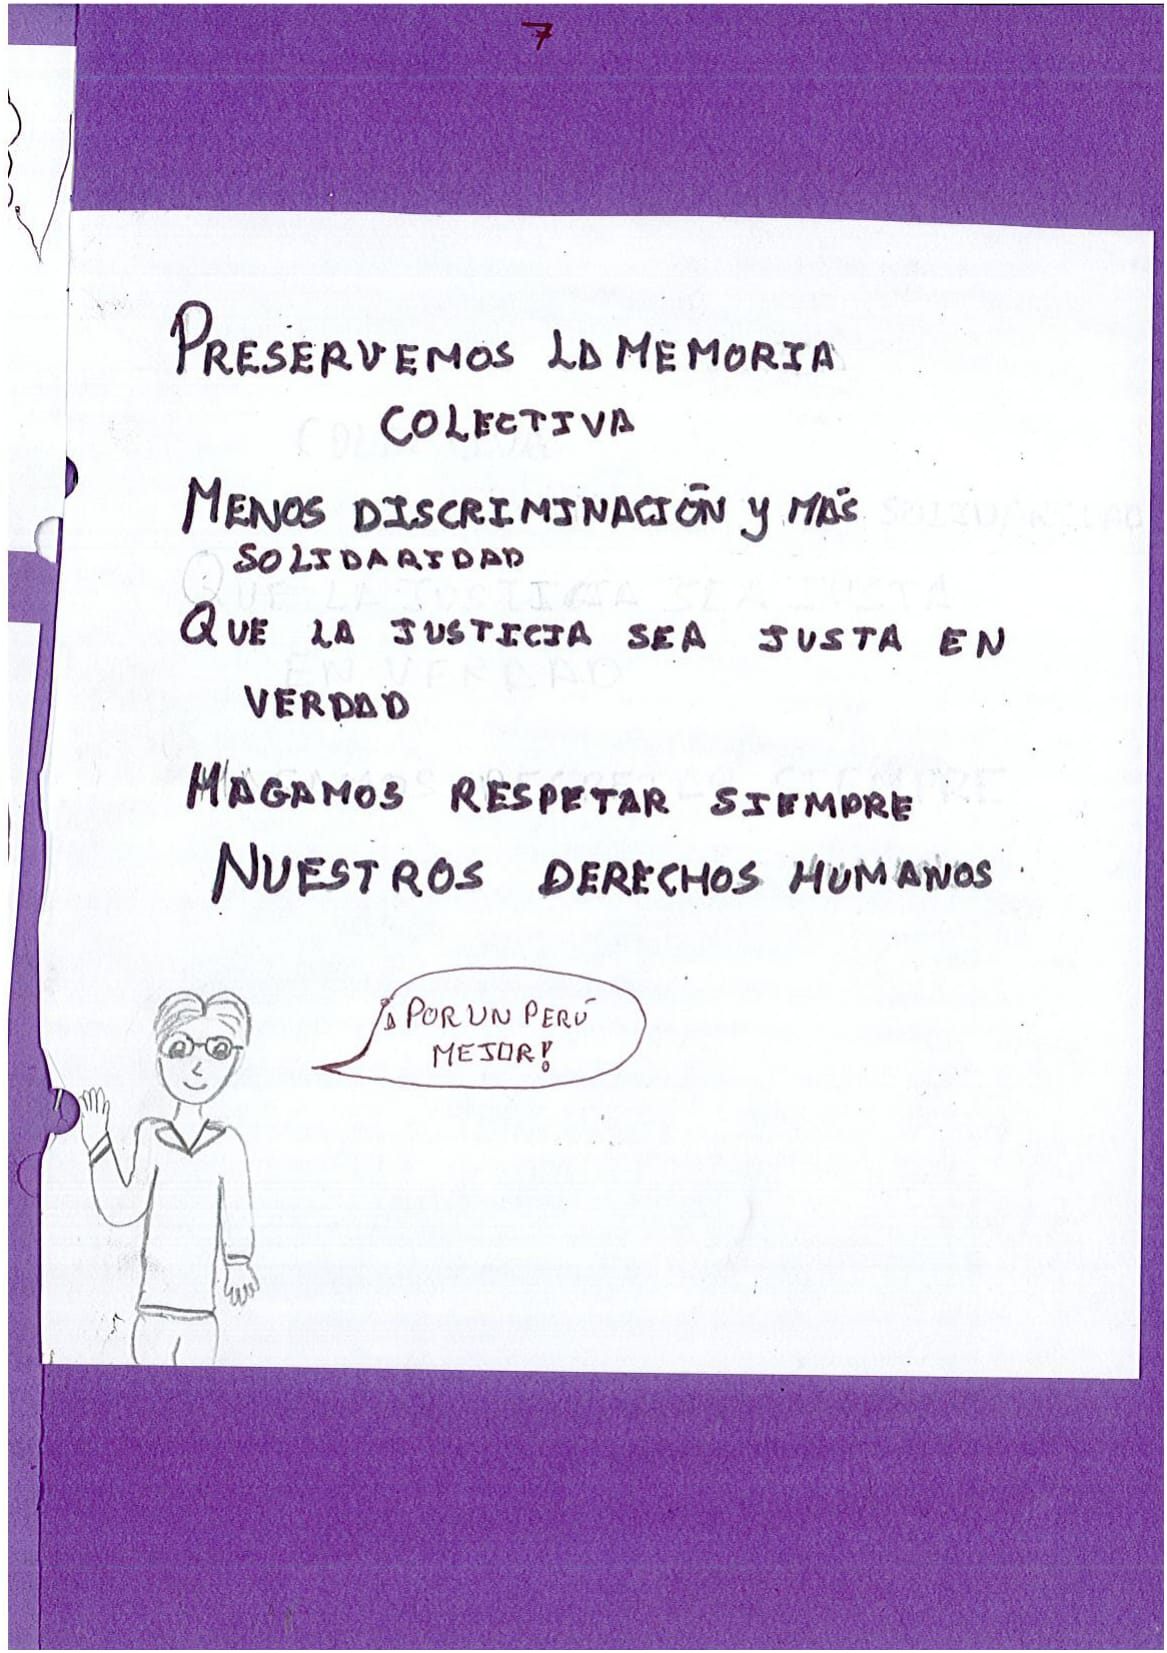 7
PRESERVEMOS LA MEMORIA
COLECTIVA
MENOS DISCRIMINACIÓN Y MÁS
SOLIDARIDAD
QUE LA JUSTICIA SEA JUSTA EN
VERDAD
HAGAMOS RESPETAR SIEMPRE
NUESTROS DERECHOS HUMANOS
¡A POR UN PERÚ
MEJOR!